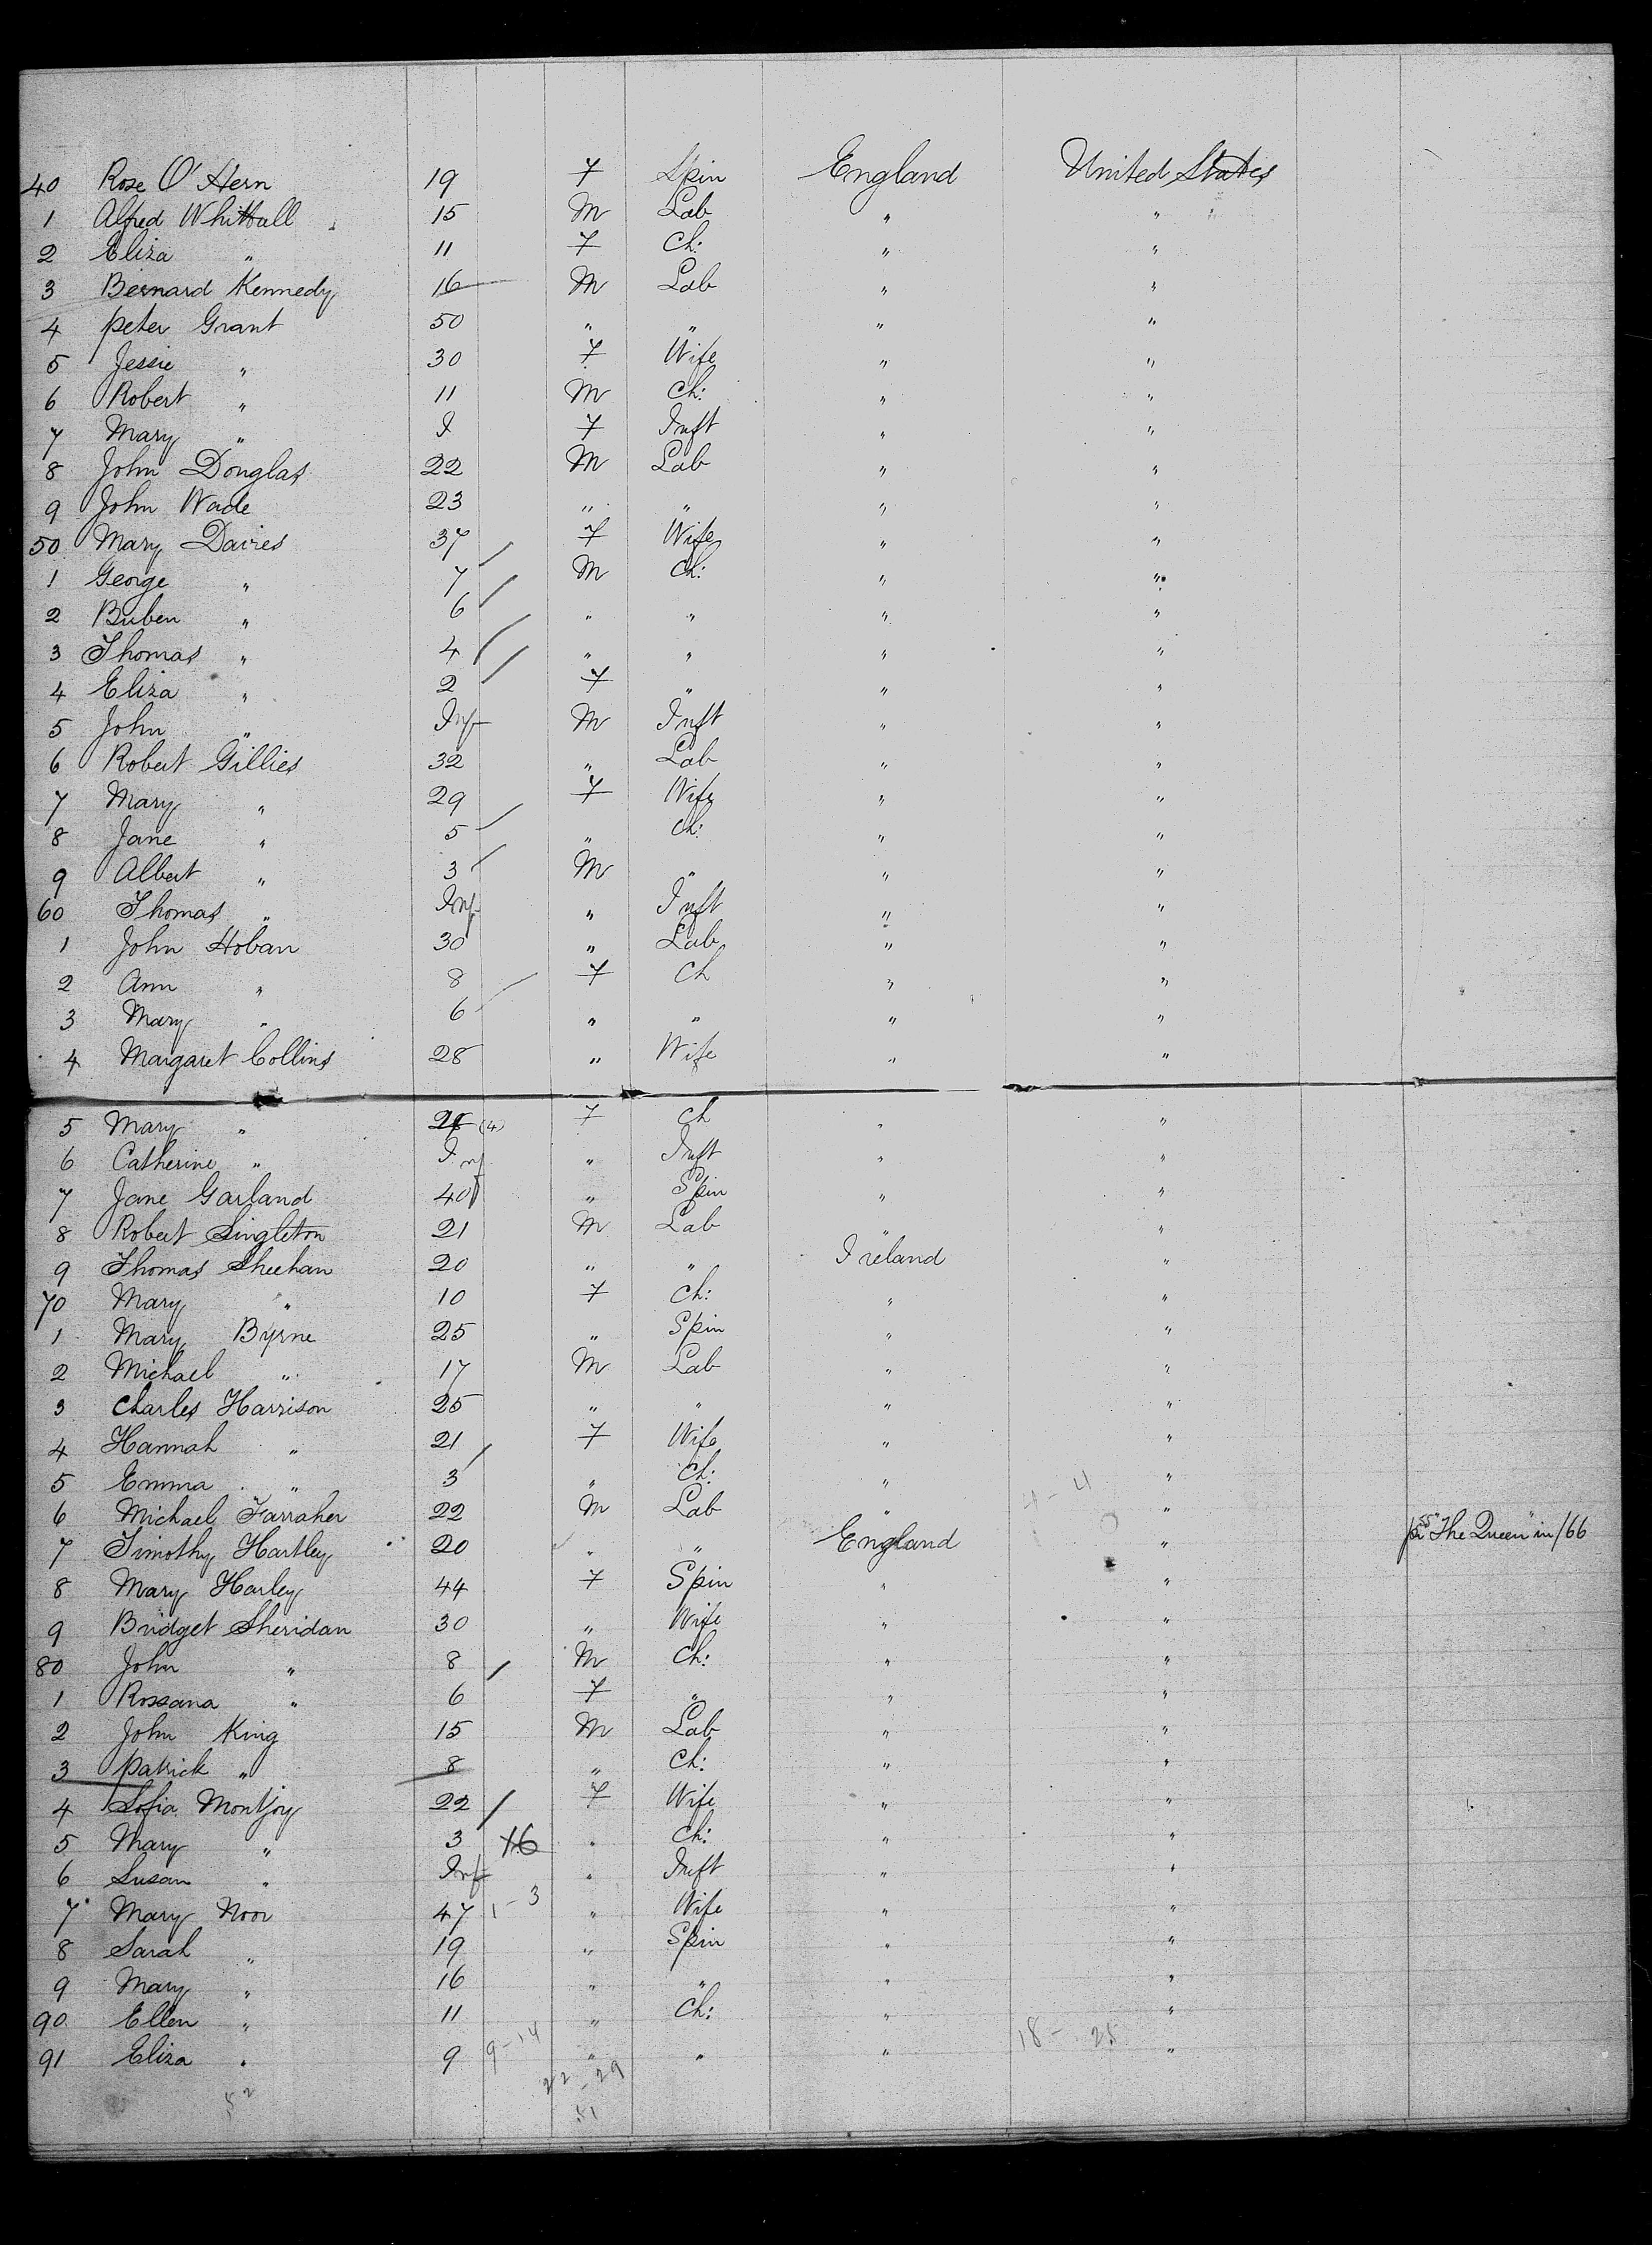 40 Rose O'Hern 19 F Spin England United States
1 Alfred Whittall 15 M Lab " "
2 Eliza " 11 F Ch: " "
3 Bernard Kennedy 16 M Lab " "
4 Peter Grant 50 " " " "
5 Jessie " 30 F Wife " "
6 Robert " 11 M Ch: " "
7 Mary " I F Inft " "
8 John Douglas 22 M Lab " "
9 John Wade 23 " " " "
50 Mary Davies 37 F Wife " "
1 George " 7 M Ch: " "
2 Buben " 6 " " " "
3 Thomas " 4 " " " "
4 Eliza " 2 F " " "
5 John " Inf M Inft " "
6 Robert Gillies 32 " Lab " "
7 Mary " 29 F Wife " "
8 Jane " 5 " Ch: " "
9 Albert " 3 M " " "
60 Thomas " Inf " Inft " "
1 John Hoban 30 " Lab " "
2 Ann " 8 F Ch " "
3 Mary " 6 " " " "
4 Margaret Collins 28 " Wife " "
5 Mary " (4) F Ch " "
6 Catherine " Inf " Inft " "
7 Jane Garland 40 " Spin " "
8 Robert Singleton 21 M Lab " "
9 Thomas Sheehan 20 " " Ireland "
70 Mary " 10 F Ch: " "
1 Mary Byrne 25 " Spin " "
2 Michael " 17 M Lab " "
3 Charles Harrison 25 " " " "
4 Hannah " 21 F Wife " "
5 Emma " 3 " Ch: " "
6 Michael Farraher 22 M Lab " "
7 Timothy Hartley 20 " " England " pr SS "The Queen" in /66
8 Mary Harley 44 F Spin " "
9 Bridget Sheridan 30 " Wife " "
80 John " 8 M Ch: " "
1 Rossana " 6 F " " "
2 John King 15 M Lab " "
3 Patrick " 8 " Ch: " "
4 Sofia Montjoy 22 F Wife " "
5 Mary " 3 X6 " Ch: " "
6 Susan " Inf " Inft " "
7 Mary Noor 47 1-3 " Wife " "
8 Sarah " 19 " Spin " "
9 Mary " 16 " " " "
90 Ellen " 11 " Ch: " "
91 Eliza " 9 9-14 " " " 18 - 25 "
52 22 - 29
51